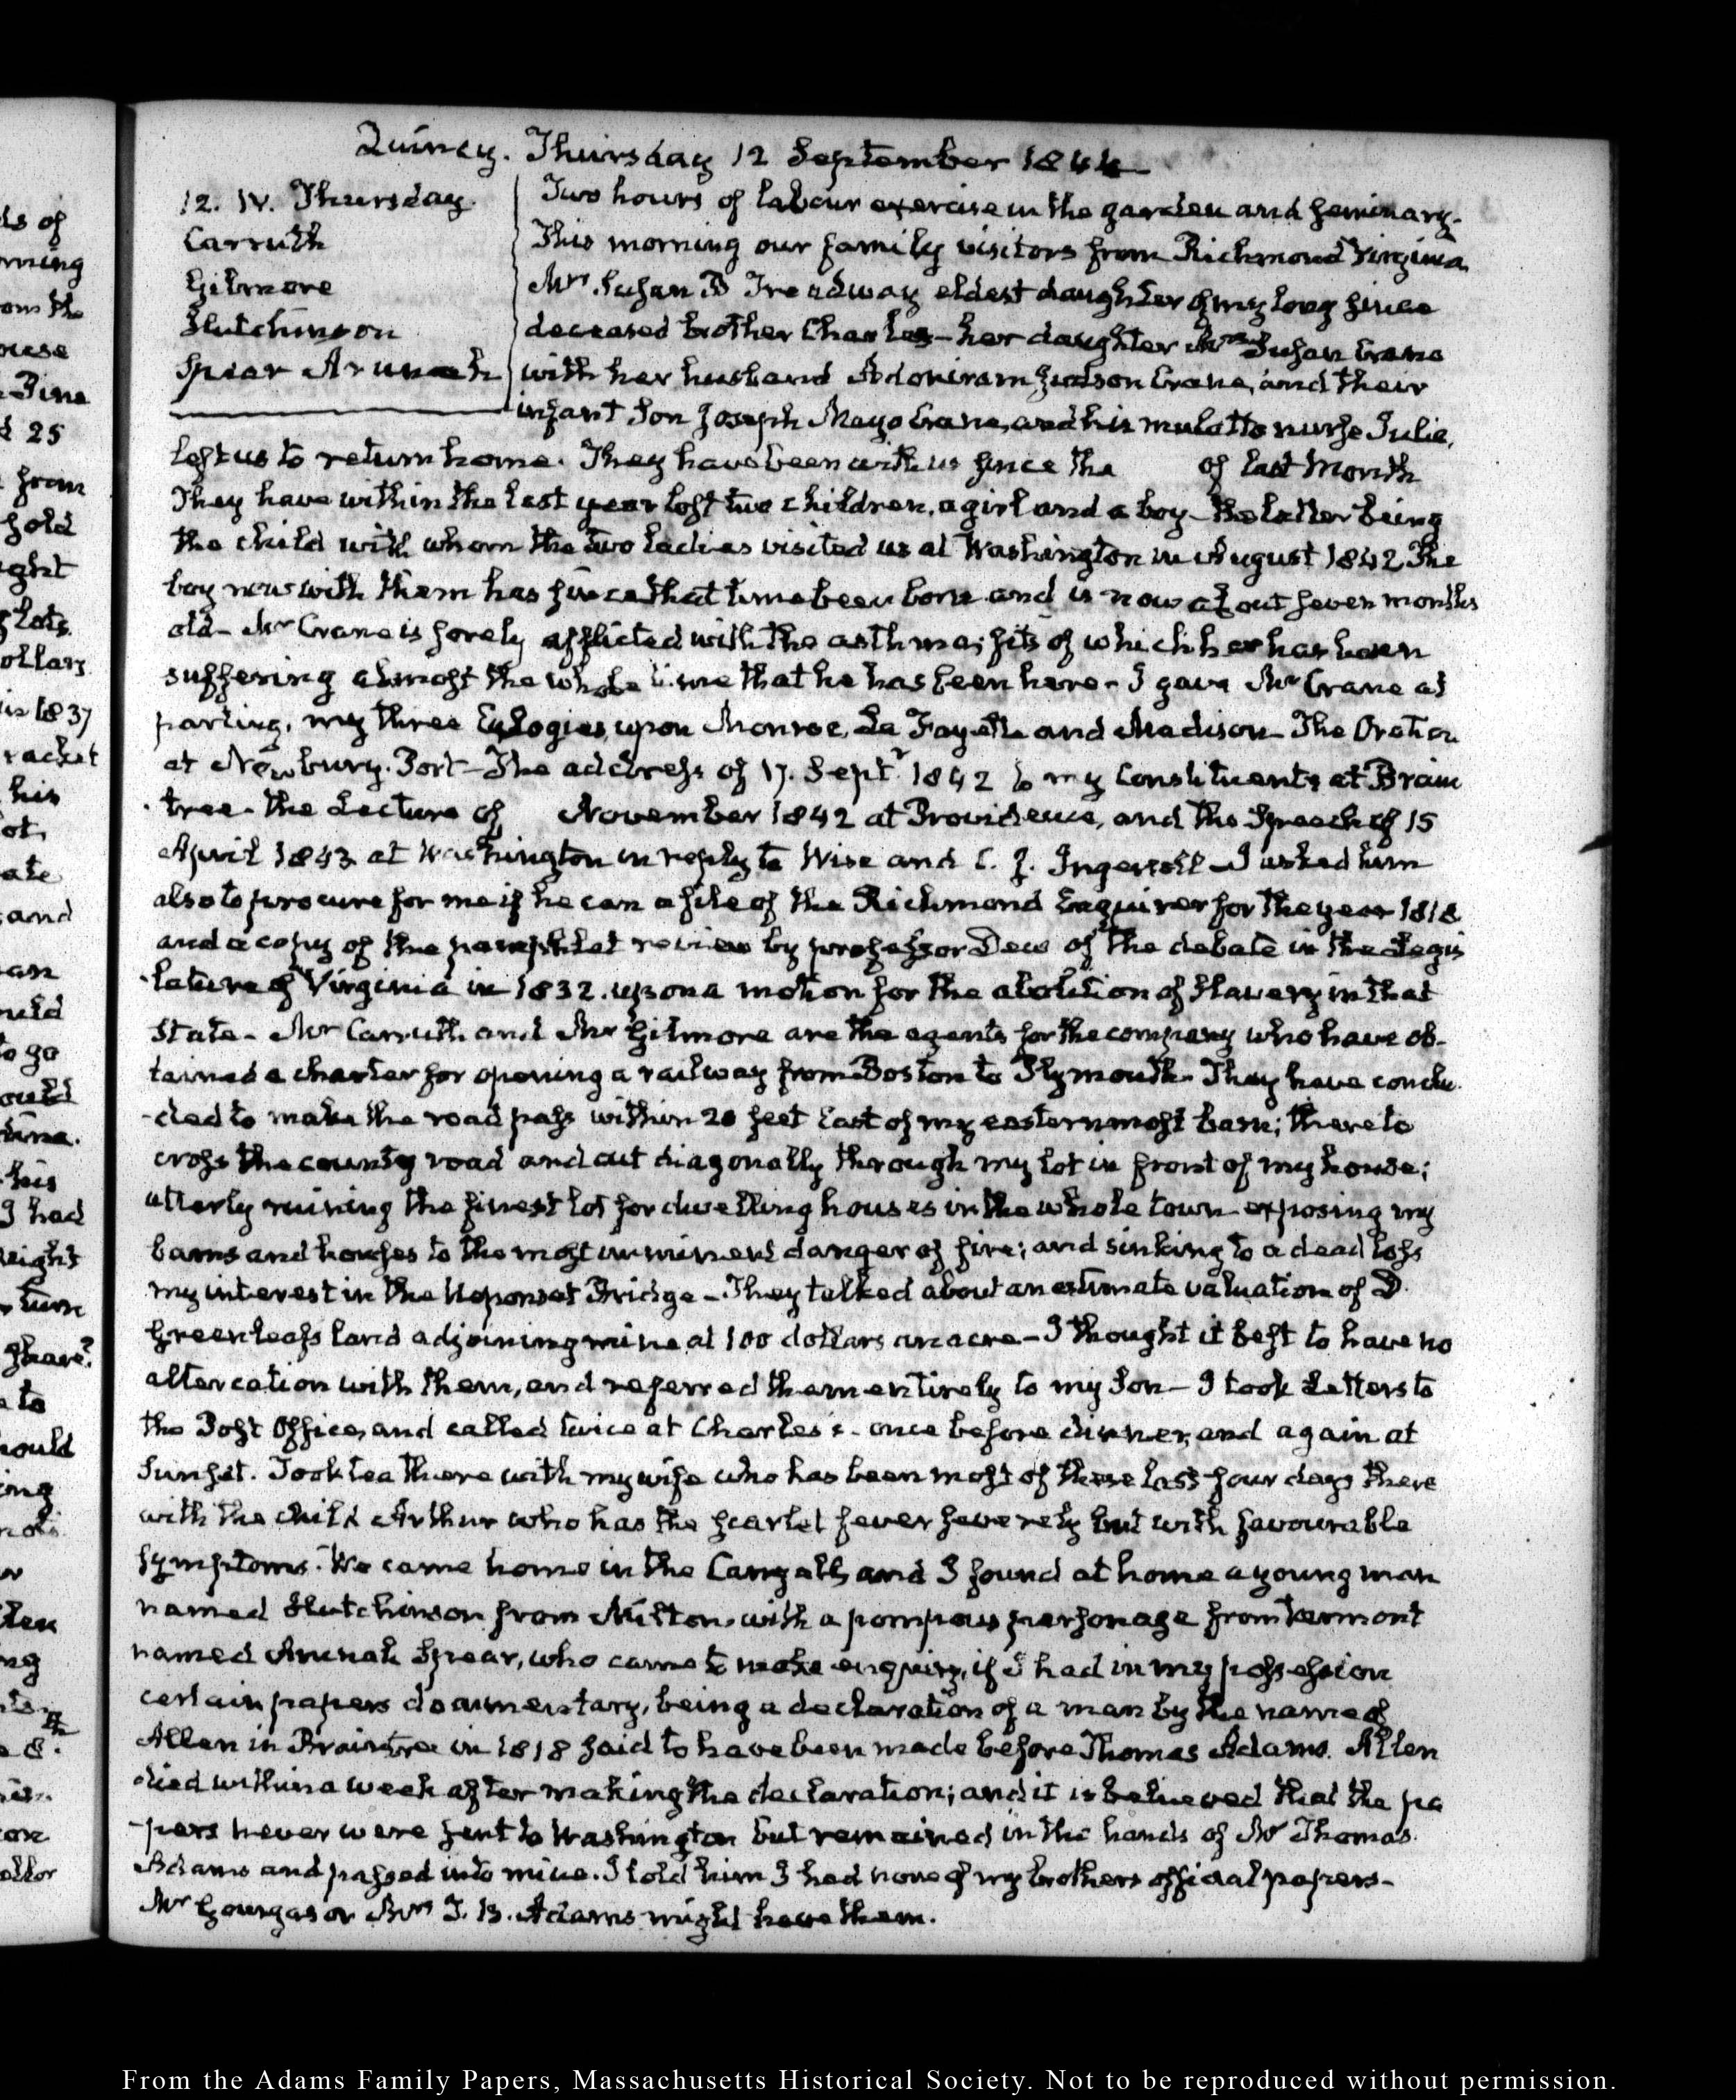 Quincy. Thursday 12 September 1844
12. IV. Thursday.
Carruth
Gilmore
Hutchinson
Spear Arunah
Two hours of labour exercise in the garden and seminary.
This morning our family visitors from Richmond Virginia
Mrs. Susan B Treadway eldest daughter of my long since
deceased brother Charles – her daughter Mrs Susan Crane
with her husband Adoniram Judson Crane, and their
infant Son Joseph Mayo Crane, and his mulatto nurse Julie,
left us to return home. They have been with us since the of last Month
They have within the last year lost two children, a girl and a boy – the latter being
the child with whom the two ladies visited us at Washington in August 1842 The
boy now with them has since that time been born and is now about seven months
old – Mr Crane is sorely afflicted with the asthma; fits of which he has been
suffering almost the whole time that he has been here – I gave Mr Crane at
parting, my three Eulogies, upon Monroe, La Fayette and Madison – The Oration
at Newbury-Port – The address of 17. Septr 1842 to my Constituents at Brain
-tree – the Lecture of November 1842 at Providence, and the Speech of 15
April 1843 at Washington in reply to Wise and C. J. Ingersoll – I asked him
also to procure for me if he can a file of the Richmond Enquirer for the year 1818
and a copy of the pamphlet review by professor Dew of the debate in the Legis
-lature of Virginia in 1832. upon a motion for the abolition of Slavery in that
State – Mr Carruth and Mr Gilmore are the agents for the company who have ob-
tained a charter for opening a railway from Boston to Plymouth – They have conclu
-ded to make the road pass within 20 feet East of my easternmost barn; there to
cross the county road and cut diagonally through my lot in front of my house;
utterly ruining the finest lot for dwelling houses in the whole town – exposing my
barns and houses to the most imminent danger of fire; and sinking to a dead loss
my interest in the Neponset Bridge – They talked about an estimate valuation of D.
Greenleafs land adjoining mine at 100 dollars an acre – I thought it best to have no
altercation with them, and referred them entirely to my Son – I took Letters to
the Post Office, and called twice at Charles's – once before dinner, and again at
Sunset. Took tea there with my wife who has been most of these last four days there
with the child Arthur who has the scarlet fever severely but with favourable
symptoms. We came home in the Carryall, and I found at home a young man
named Hutchinson from Milton, with a pompous personage from Vermont
named Arunah Spear, who came to make enquiry, if I had in my possession
certain papers documentary, being a declaration of a man by the name of
Allen in Braintree in 1818 said to have been made before Thomas Adams. Allen
died within a week after making the declaration; and it is believed that the pa
-pers never were sent to Washington but remained in the hands of Mr Thomas
Adams and passed into mine. I told him I had none of my brothers official papers –
Mr Gourgas or Mrs T. B. Adams might have them.
From the Adams Family Papers, Massachusetts Historical Society. Not to be reproduced without permission.